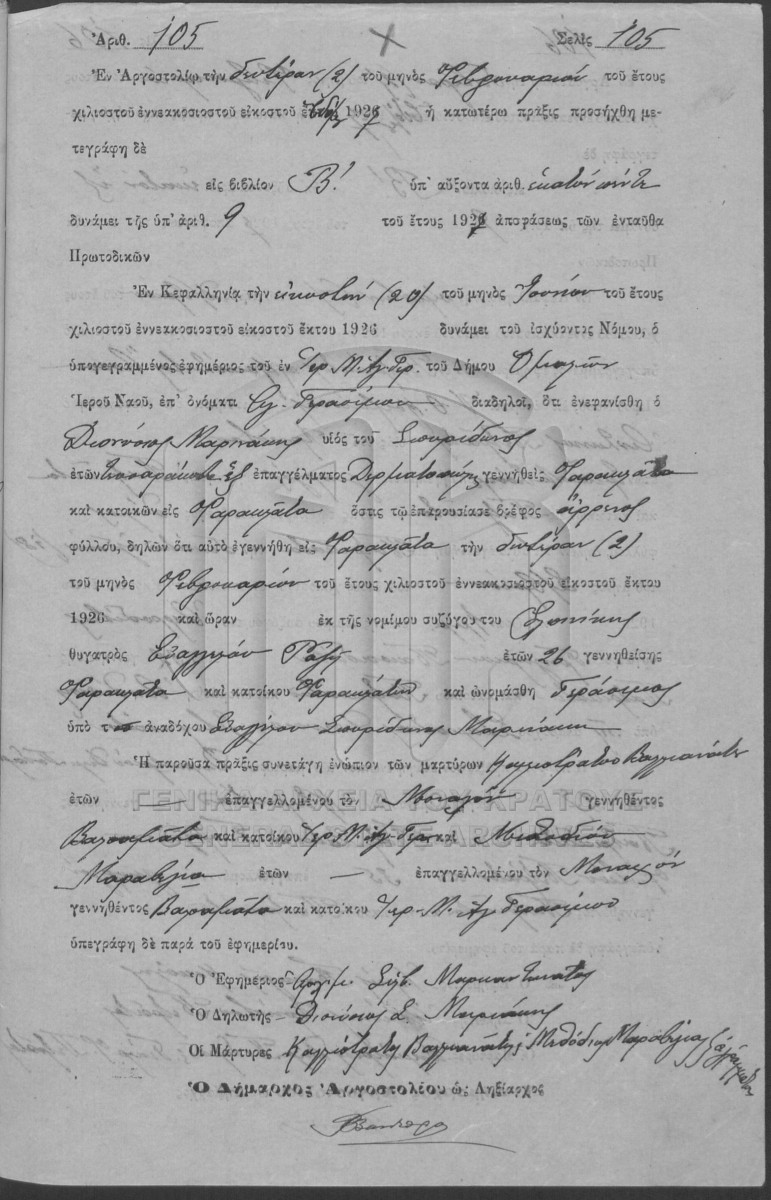 Ἀριθ. 105 Σελὶς 105
Ἐν Ἀργοστολίῳ τὴν δευτέραν (2) τοῦ μηνὸς Φεβρουαρίου τοῦ ἔτους
χιλιοστοῦ ἐννεακοσιοστοῦ εἰκοστοῦ 1927 ἡ κατωτέρω πρᾶξις προσήχθη με-
τεγράφη δὲ
εἰς βιβλίον Β! ὑπ' αὔξοντα ἀριθ. ἑκατὸν πέντε
δυνάμει τῆς ὑπ' ἀριθ. 9 τοῦ ἔτους 1927 ἀποφάσεως τῶν ἐνταῦθα
Πρωτοδικῶν
Ἐν Κεφαλληνίᾳ τὴν εἰκοστὴν (20) τοῦ μηνὸς Ἰουνίου τοῦ ἔτους
χιλιοστοῦ ἐννεακοσιοστοῦ εἰκοστοῦ ἕκτου 1926 δυνάμει τοῦ ἰσχύοντος Νόμου, ὁ
ὑπογεγραμμένος ἐφημέριος τοῦ ἐν Ἱερ. Μ. Ἁγ. Γερ. τοῦ Δήμου Ὁμαλῶν
Ἱεροῦ Ναοῦ, ἐπ' ὀνόματι Ἁγ. Γερασίμου διαδηλοῖ, ὅτι ἐνεφανίσθη ὁ
Διονύσιος Μαρινάκης υἱὸς τοῦ Σπυρίδωνος
ἐτῶν τεσσαράκοντα ἓξ ἐπαγγέλματος γεννηθεὶς Φαρακλᾶτα
καὶ κατοικῶν εἰς Φαρακλᾶτα ὅστις τῷ ἐπαρουσίασε βρέφος ἄρρενος
φύλλου, δηλῶν ὅτι αὐτὸ ἐγεννήθη εἰς Φαρακλᾶτα τὴν δευτέραν (2)
τοῦ μηνὸς Φεβρουαρίου τοῦ ἔτους χιλιοστοῦ ἐννεακοσιοστοῦ εἰκοστοῦ ἕκτου
1926 καὶ ὥραν ἐκ τῆς νομίμου συζύγου του Ἑλπινίκης
θυγατρὸς Εὐαγγέλου ἐτῶν 26 γεννηθείσης
Φαρακλᾶτα καὶ κατοίκου Φαρακλάτων καὶ ὠνομάσθη Γεράσιμος
ὑπὸ τ ἀναδόχου Εὐαγγέλου Σπυρίδωνος Μαρινάκη
Ἡ παροῦσα πρᾶξις συνετάγη ἐνώπιον τῶν μαρτύρων Καλλιστράτου Βαλλιανάτου
ἐτῶν — ἐπαγγελλομένου τὸν Μοναχόν γεννηθέντος
Βαλσαμᾶτα καὶ κατοίκου Ἱερ. Μ. Ἁγ. Γερ. καὶ Μεθοδίου
Μαραβέλια ἐτῶν — ἐπαγγελλομένου τὸν Μοναχόν
γεννηθέντος Βαλσαμᾶτα καὶ κατοίκου Ἱερ. Μ. Ἁγ. Γερασίμου
ὑπεγράφη δὲ παρὰ τοῦ ἐφημερίου.
Ὁ Ἐφημέριος Μαρκαντωνάτος
Ὁ Δηλωτὴς Διονύσιος Σ. Μαρινάκης
Οἱ Μάρτυρες Καλλίστρατος Βαλλιανάτος Μεθόδιος Μαραβέλιας
Ὁ Δήμαρχος Ἀργοστολίου ὡς Ληξίαρχος
ΓΕΝΙΚΑ ΑΡΧΕΙΑ ΤΟΥ ΚΡΑΤΟΥΣ
GENERAL STATE ARCHIVES